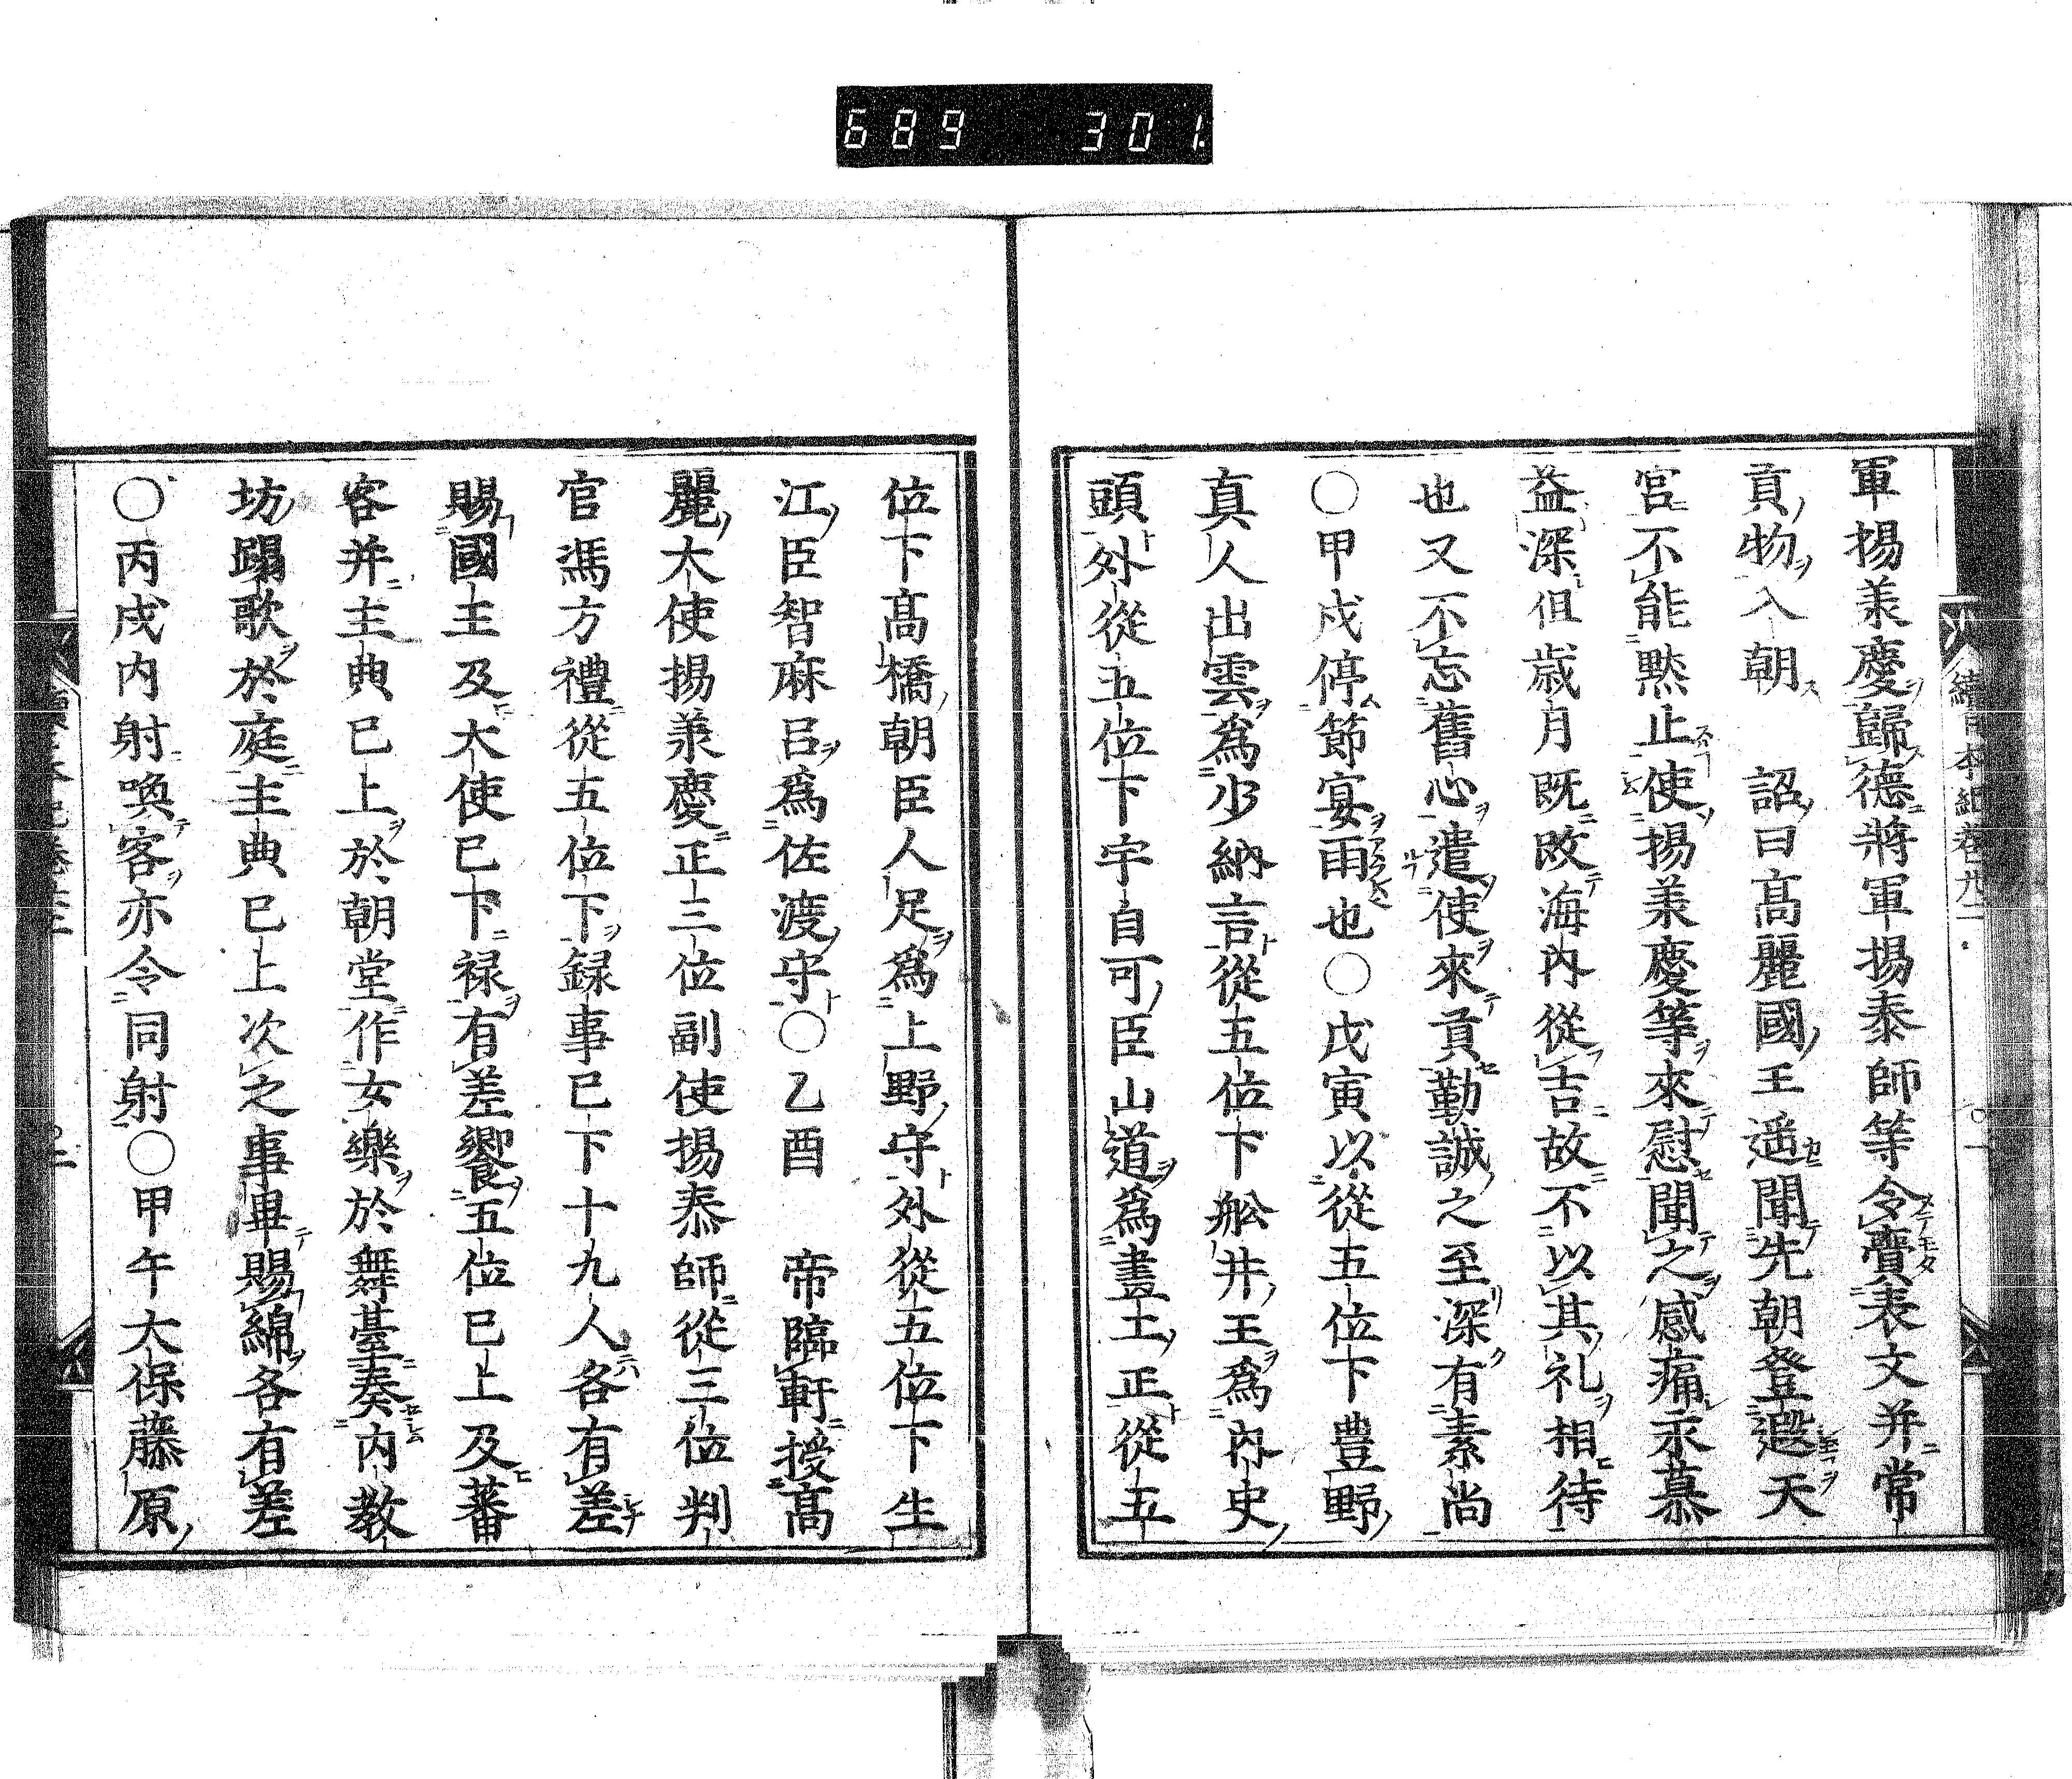 689 301.
軍揚羕慶歸德將軍揚泰師等令賷表文并常
貢物入朝 詔曰髙麗國王遥聞先朝登遐天
宮不能黙止使揚羕慶等來慰聞之感痛永慕
益深但歳月既改海內從吉故不以其礼相待
也又不忘舊心遣使來貢勤誠之至深有素尚
〇甲戍停節宴雨也〇戊寅以從五位下豊野
真人出雲爲少納言從五位下舩井王爲內史
頭外從五位下宇自可臣山道爲畫工正從五
位下髙橋朝臣人足爲上野守外從五位下生
江臣智麻呂爲佐渡守〇乙酉 帝臨軒授髙
麗大使揚羕慶正三位副使揚泰師從三位判
官馮方禮從五位下録事已下十九人各有差
賜國王及大使已下禄有差饗五位已上及蕃
客并主典已上於朝堂作女樂於舞臺奏內教
坊蹋歌於庭主典已上次之事畢賜綿各有差
〇丙戍内射喚客亦令同射〇甲午大保藤原